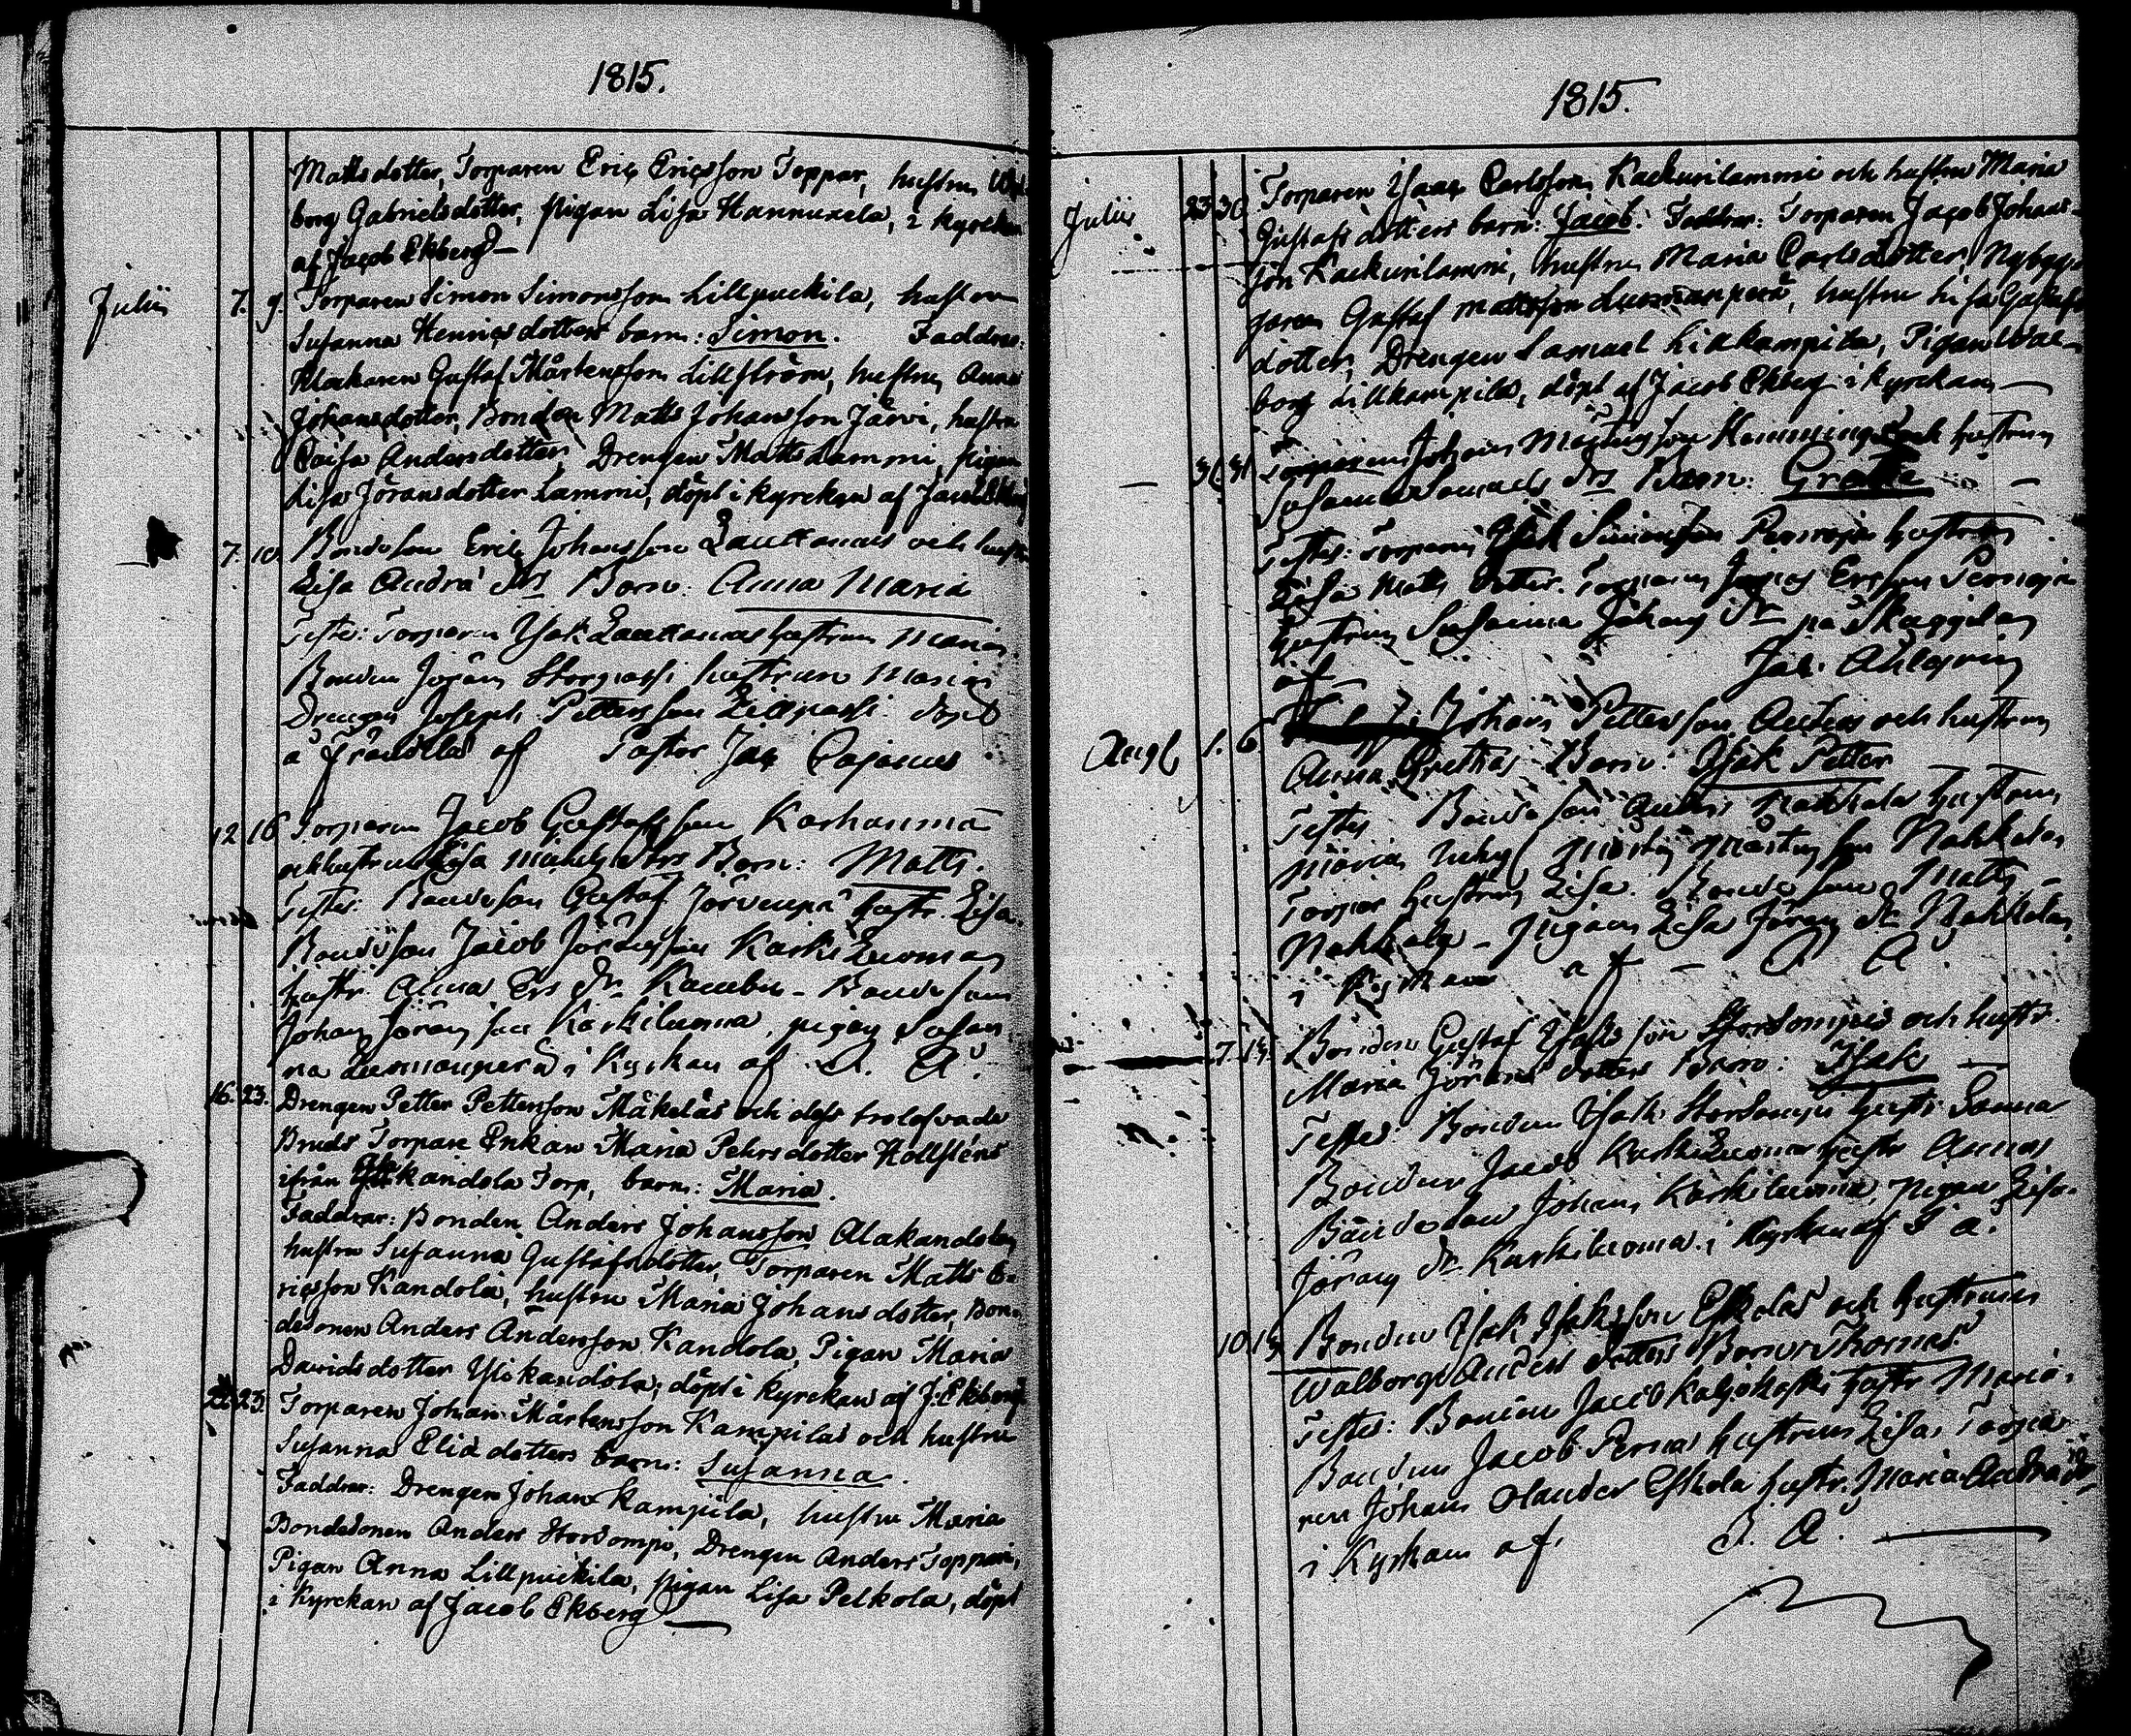 1815.
Mattsdotter, Torparen Eric Ericsson Toppar, hustru Wal-
borg Gabrielsdotter, pigan Lisa Hannuxela, i kyrckan
af Jacob Ekberg —
Julii 7. 9. Torparen Simon Simonsson Lillpuckila, hustru
Susanna Henricsdotters barn: Simon. Faddrar:
Gustaf Mårtensson Lillström, hustru Anna
Johansdotter, Bonden Matts Johansson Järvi, hustru
Caisa Andersdotter, Drengen Matts Lammi, pigan
Lisa Jöransdotter Lammi, döpt i kyrckan af Jacob Ekberg
7. 10. Bondeson Eric Johansson Lauttamus och hustru
Lisa Andrä drs Barn: Anna Maria
Testes: Torparen Isak Lauttamus hustrun Maria.
Bonden Jöran Storpassi hustrun Maria
Drengen Joseph Pettersson Lillpassi. döpt
å Frändilä af Pastor Jac Cajanus
12 16 Torparen Jacob Gustafsson Karhanmaa
och hustrun Lisa drs Barn: Matts.
Testes: Bondeson Gustaf Järvenpä hustr. Lisa.
Bondeson Jacob Jöransson Karkiluoma
hustr. Anna Ers dr. - Bondeson
Johan Jöransson Karkiluoma, pigan Susan
na Luomanperä i Kyrkan af J. A.
16. 23. Drengen Petter Pettersson Mäkeläs och dess trolofvade
Bruds Torpare Enkan Maria Pehrsdotter Hollsténs
ifrån Alakandola Torp, barn: Maria.
Faddrar: Bonden Anders Johansson Alakandola,
hustru Susanna Gustafsdotter, Torparen Matts E-
ricsson Kandola, hustru Maria Johansdotter, Bon-
desonen Anders Andersson Kandola, Pigan Maria
Davidsdotter Ylikandola, döpt i kyrckan af J. Ekberg
22 23. Torparen Johan Mårtensson Kampilas och hustru
Susanna Eliædotters barn: Susanna.
Faddrar: Drengen Johan Kampila, hustru Maria
Bondesonen Anders Stordompi, Drengen Anders Toppari,
Pigan Anna Lillpuckila, pigan Lisa Pelkola, döpt
i Kyrckan af Jacob Ekberg —
1815.
Julii 23 30 Torparen Isaac Carlsson Kackurilammi och hustru Maria
Gustafsdotters barn: Jacob. Faddrar: Torparen Jacob Johans-
son Kackurilammi, hustru Maria Carlsdotter, Nybyg-
garen Gustaf Mattsson Luomanperä, hustru Lisa Gustafs-
dotter, Drengen Samuel Lillkampila, Pigan Wal-
borg Lillkampila, döpt af Jacob Ekberg i kyrckan —
— 31 31 Torparen Johan Mårtensson och hustrun
Susanna Samuels drs Barn: Greta —
Testes: Torparen Isak Simonsson Penroja hustrun
Lisa Matts dotter. Torparen Ersson Penroja
hustrun Susanna Johans dr på Skaggilan
af Jac. Ahlgren
Augt 1. 6 Johan Pettersson och hustrun
Anna Grethas Barn: Isak Petter
Testes Bondeson Nahkala hustrun
Maria, Mårtensson Nahkala
Torpar hustrun Lisa. Bondeson Matts
Nahkala - Pigan Lisa Jörans dr Nahkala
i Kyrkan af - J. A
7. 13. Bonden Gustaf Isaksson Stordompis och hustr.
Maria Jörans dotters Barn: Isak —
Testes: Bonden Isak Stordompi hustr. Sanna
Bonden Jacob Karkiluoma hustr Anna
Bondeson Johan Karkiluoma, pigan Lisa
Jörans dr Karkiluoma i Kyrkan af J A.
10. 13. Bonden Isak Isaksson Eskolas och hustrun
Walborg Anders dotters Barn: Thomas.
Testes: Bonden Jacob Kaljokoski hustr Maria.
Bonden Jacob Pernas hustrun Lisa, Torpa
ren Johan Olander Eskola hustr. Maria Andrä dr
i Kyrkan af J. A. —